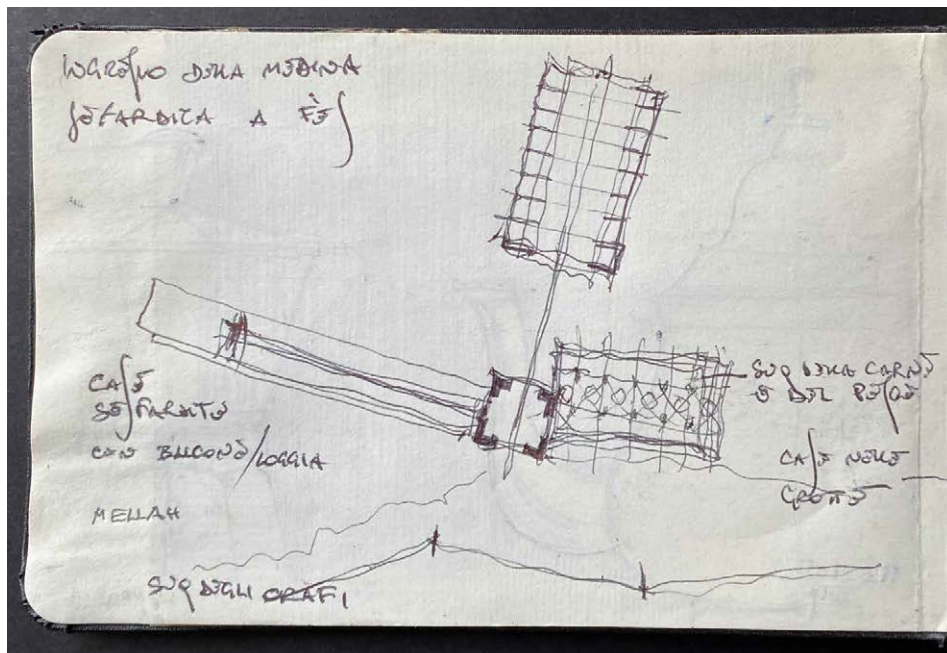 INGRESSO DELLA MEDINA
SEFARDITA A FÈS
CASE
SEFARDITE
CON BALCONE/LOGGIA
MELLAH
SUQ DEGLI ORAFI
SUQ DELLA CARNE
E DEL PESCE
CASE NELLE
GROTTE